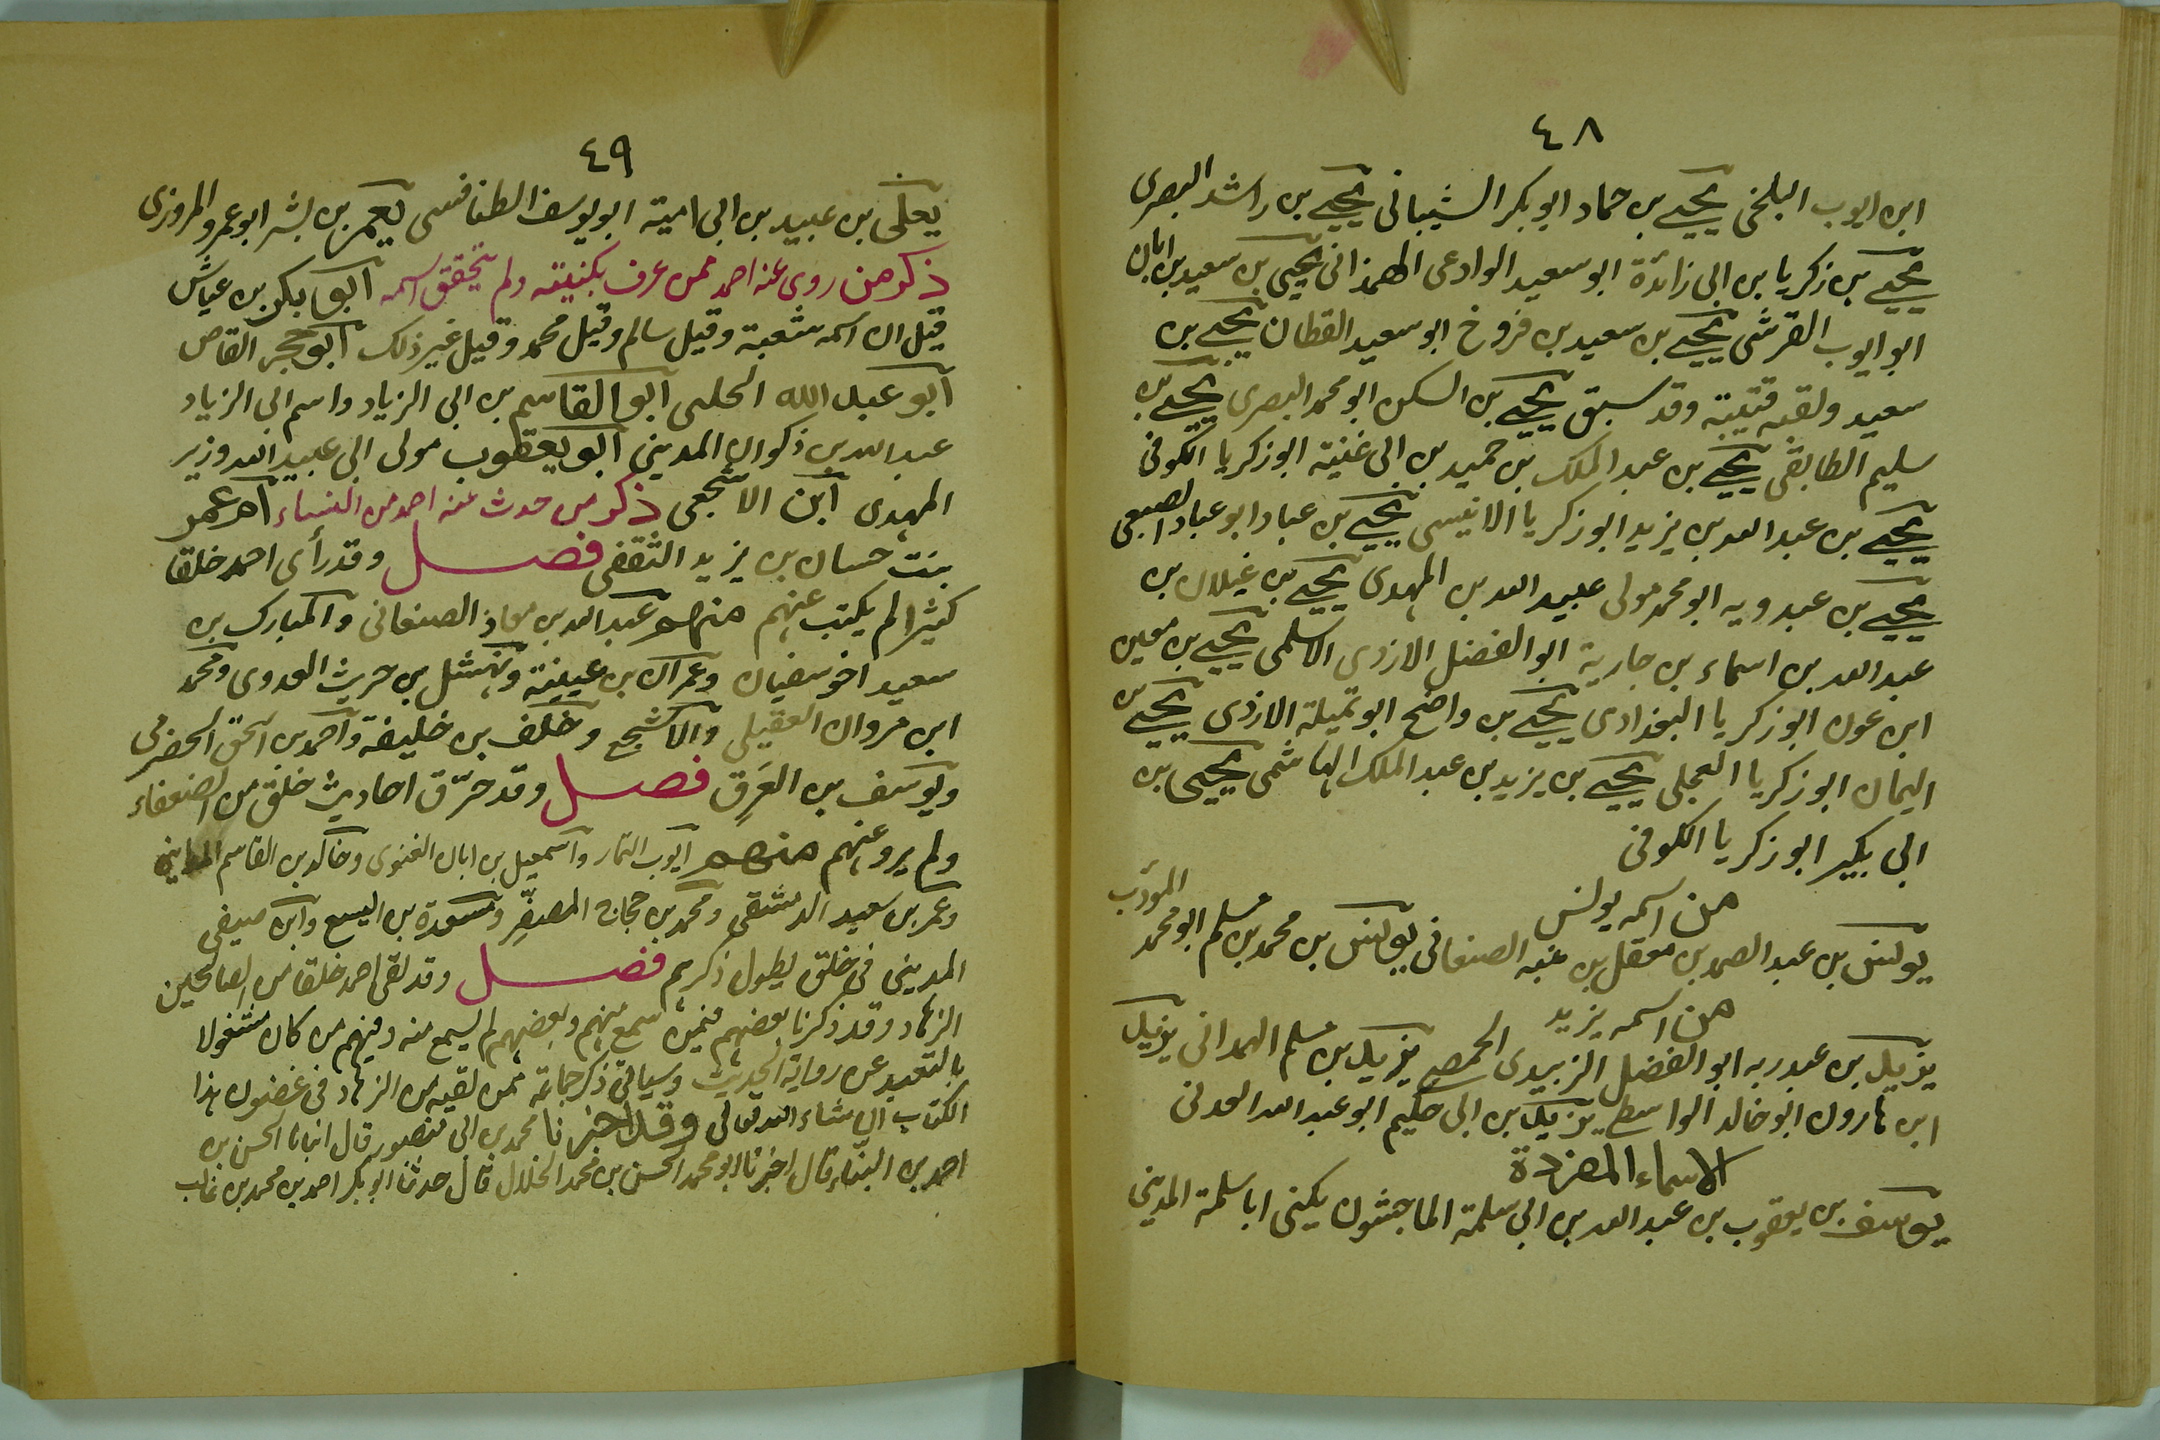 ٤٨
ابن ايوب البلخى يحيى بن حماد ابو بكر الشيبانى يحيى بن راشد البصرى
يحيى بن زكريا بن ابى زائدة ابو سعيد الوادعى الهمذانى يحيى بن سعيد بن ابان
ابو ايوب القرشى يحيى بن سعيد بن فروخ ابو سعيد القطان يحيى بن
سعيد ولقبه قتيبة وقد سبق يحيى بن السكن ابو محمد البصرى يحيى بن
سليم الطايفى يحيى بن عبد الملك بن حميد بن ابى غنية ابو زكريا الكوفى
يحيى بن عبد الله بن يزيد ابو زكريا الانيسى يحيى بن عباد ابو عباد الضبعى
يحيى بن عبدويه ابو محمد مولى عبيد الله بن المهدى يحيى بن غيلان بن
عبد الله بن اسماء بن جارية ابو الفضل الازدى الاسلمى يحيى بن معين
ابن عون ابو زكريا البغدادى يحيى بن واضح ابو تميلة الازدى يحيى بن
اليمان ابو زكريا العجلى يحيى بن يزيد بن عبد الملك الهاشمى يحيى بن
ابى بكير ابو زكريا الكوفى
من اسمه يونس
يونس بن عبد الصمد بن معقل بن منبه الصنعانى يونس بن محمد بن مسلم ابو محمد المؤدب
من اسمه يزيد
يزيد بن عبد ربه ابو الفضل الزبيدى الحمصى يزيد بن مسلم الهمدانى يزيد
ابن هارون ابو خالد الواسطى يزيد بن ابى حكيم ابو عبد الله العدنى
الاسماء المفردة
يوسف بن يعقوب بن عبد الله بن ابى سلمة الماجشون يكنى ابا سلمة المدينى
٤٩
يعلى بن عبيد بن ابى امية ابو يوسف الطنافسى يعمر بن بشر ابو عمرو المروزى
ذكر من روى عنه احمد ممن عرف بكنيته ولم يتحقق اسمه ابو بكر بن عياش
قيل ان اسمه شعبة وقيل سالم وقيل محمد وقيل غير ذلك ابو حجر القاص
ابو عبد الله الحلبى ابو القاسم بن ابى الزياد واسم ابى الزياد
عبد الله بن ذكوان المدينى ابو يعقوب مولى ابى عبيد الله وزير
المهدى ابن الاشجعى ذكر من حدث عنه احمد من النساء ام عمر
بنت حسان بن يزيد الثقفى فصل وقد رأى احمد خلقا
كثيرا لم يكتب عنهم منهم عبد الله بن معاذ الصنعانى والمبارك بن
سعيد اخو سفيان وعمران بن عيينة ونهشل بن حريث العدوى ومحمد
ابن مروان العقيلى والاشجع وخلف بن خليفة واحمد بن اسحق الحضرمى
ويوسف بن الغرق فصل وقد خرّق احاديث خلق من الضعفاء
ولم يرو عنهم منهم ايوب التمار واسمعيل بن ابان الغنوى وخالد بن القاسم المداينى
وعمر بن سعيد الدمشقى ومحمد بن حجاج المصفّر ومسعدة بن اليسع وابن صيفى
المدينى فى خلق يطول ذكرهم فصل وقد لقى احمد خلقا من الصالحين
الزهاد وقد ذكرنا بعضهم فيمن سمع منهم وبعضهم لم يسمع منه ومنهم من كان مشغولا
بالتعبد عن رواية الحديث وسياتى ذكر جماعة ممن لقيه من الزهاد فى غضون هذا
الكتاب ان شاء الله تعالى وقد اخبرنا محمد بن ابى منصور قال انبانا الحسن بن
احمد بن البناء قال اخبرنا ابو محمد الحسن بن محمد الخلال قال حدثنا ابو بكر احمد بن محمد بن غالب